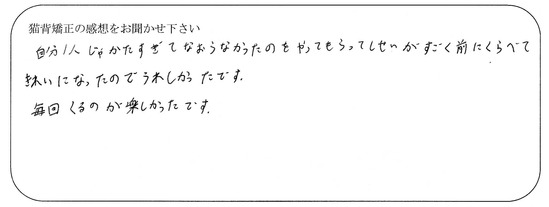 猫背矯正の感想をお聞かせ下さい
自分1人じゃかたすぎてなおらなかったのをやってもらってしせいがすごく前にくらべて
きれいになったのでうれしかったです.
毎回くるのが楽しかったです.